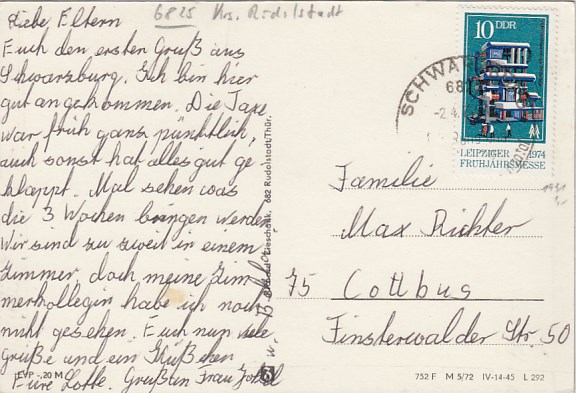 6825 Krs. Rudolstadt
Liebe Eltern
Euch den ersten Gruß aus
Schwarzburg. Ich bin hier
gut angekommen. Die Taxe
war früh ganz pünktlich,
auch sonst hat alles gut ge
klappt. Mal sehen was
die 3 Wochen bringen werden
Wir sind zu zweit in einem
Zimmer, doch meine Zim-
merkollegin habe ich noch
nicht gesehen. Euch nun viele
Grüße und ein Küßchen
Eure Lotte. Gruß an Frau
EVP -,20 M
682 Rudolstadt/Thür.
10 DDR
LEIPZIGER 1974
FRÜHJAHRSMESSE
SCHWARZ
68
-2.4.
Familie
Max Richter
75 Cottbus
Finsterwalder Str. 50
752 F M 5/72 IV-14-45 L 292